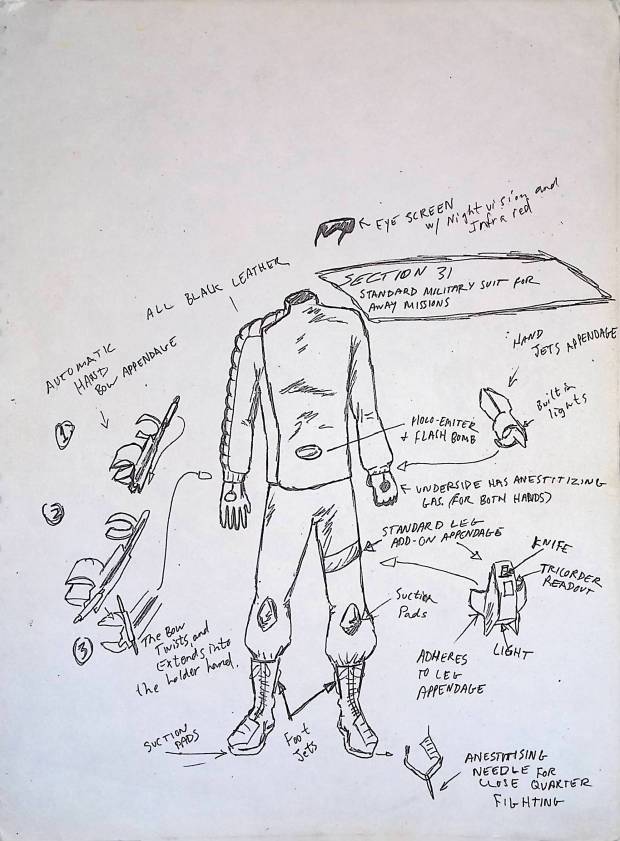 EYE SCREEN
w/ Night vision and
Infra red
SECTION 31
STANDARD MILITARY SUIT FOR
AWAY MISSIONS
ALL BLACK LEATHER
AUTOMATIC
HAND
BOW APPENDAGE
HAND
JETS APPENDAGE
Built in
lights
1
HOLO-EMITER
+ FLASH BOMB
UNDERSIDE HAS ANESTITIZING
GAS. (FOR BOTH HANDS)
2
STANDARD LEG
ADD-ON APPENDAGE
KNIFE
TRICORDER
READOUT
Suction
Pads
3
The Bow
Twists, and
Extends, into
the holder hand.
LIGHT
ADHERES
TO LEG
APPENDAGE
SUCTION
PADS
Foot
Jets
ANESTITISING
NEEDLE FOR
CLOSE QUARTER
FIGHTING